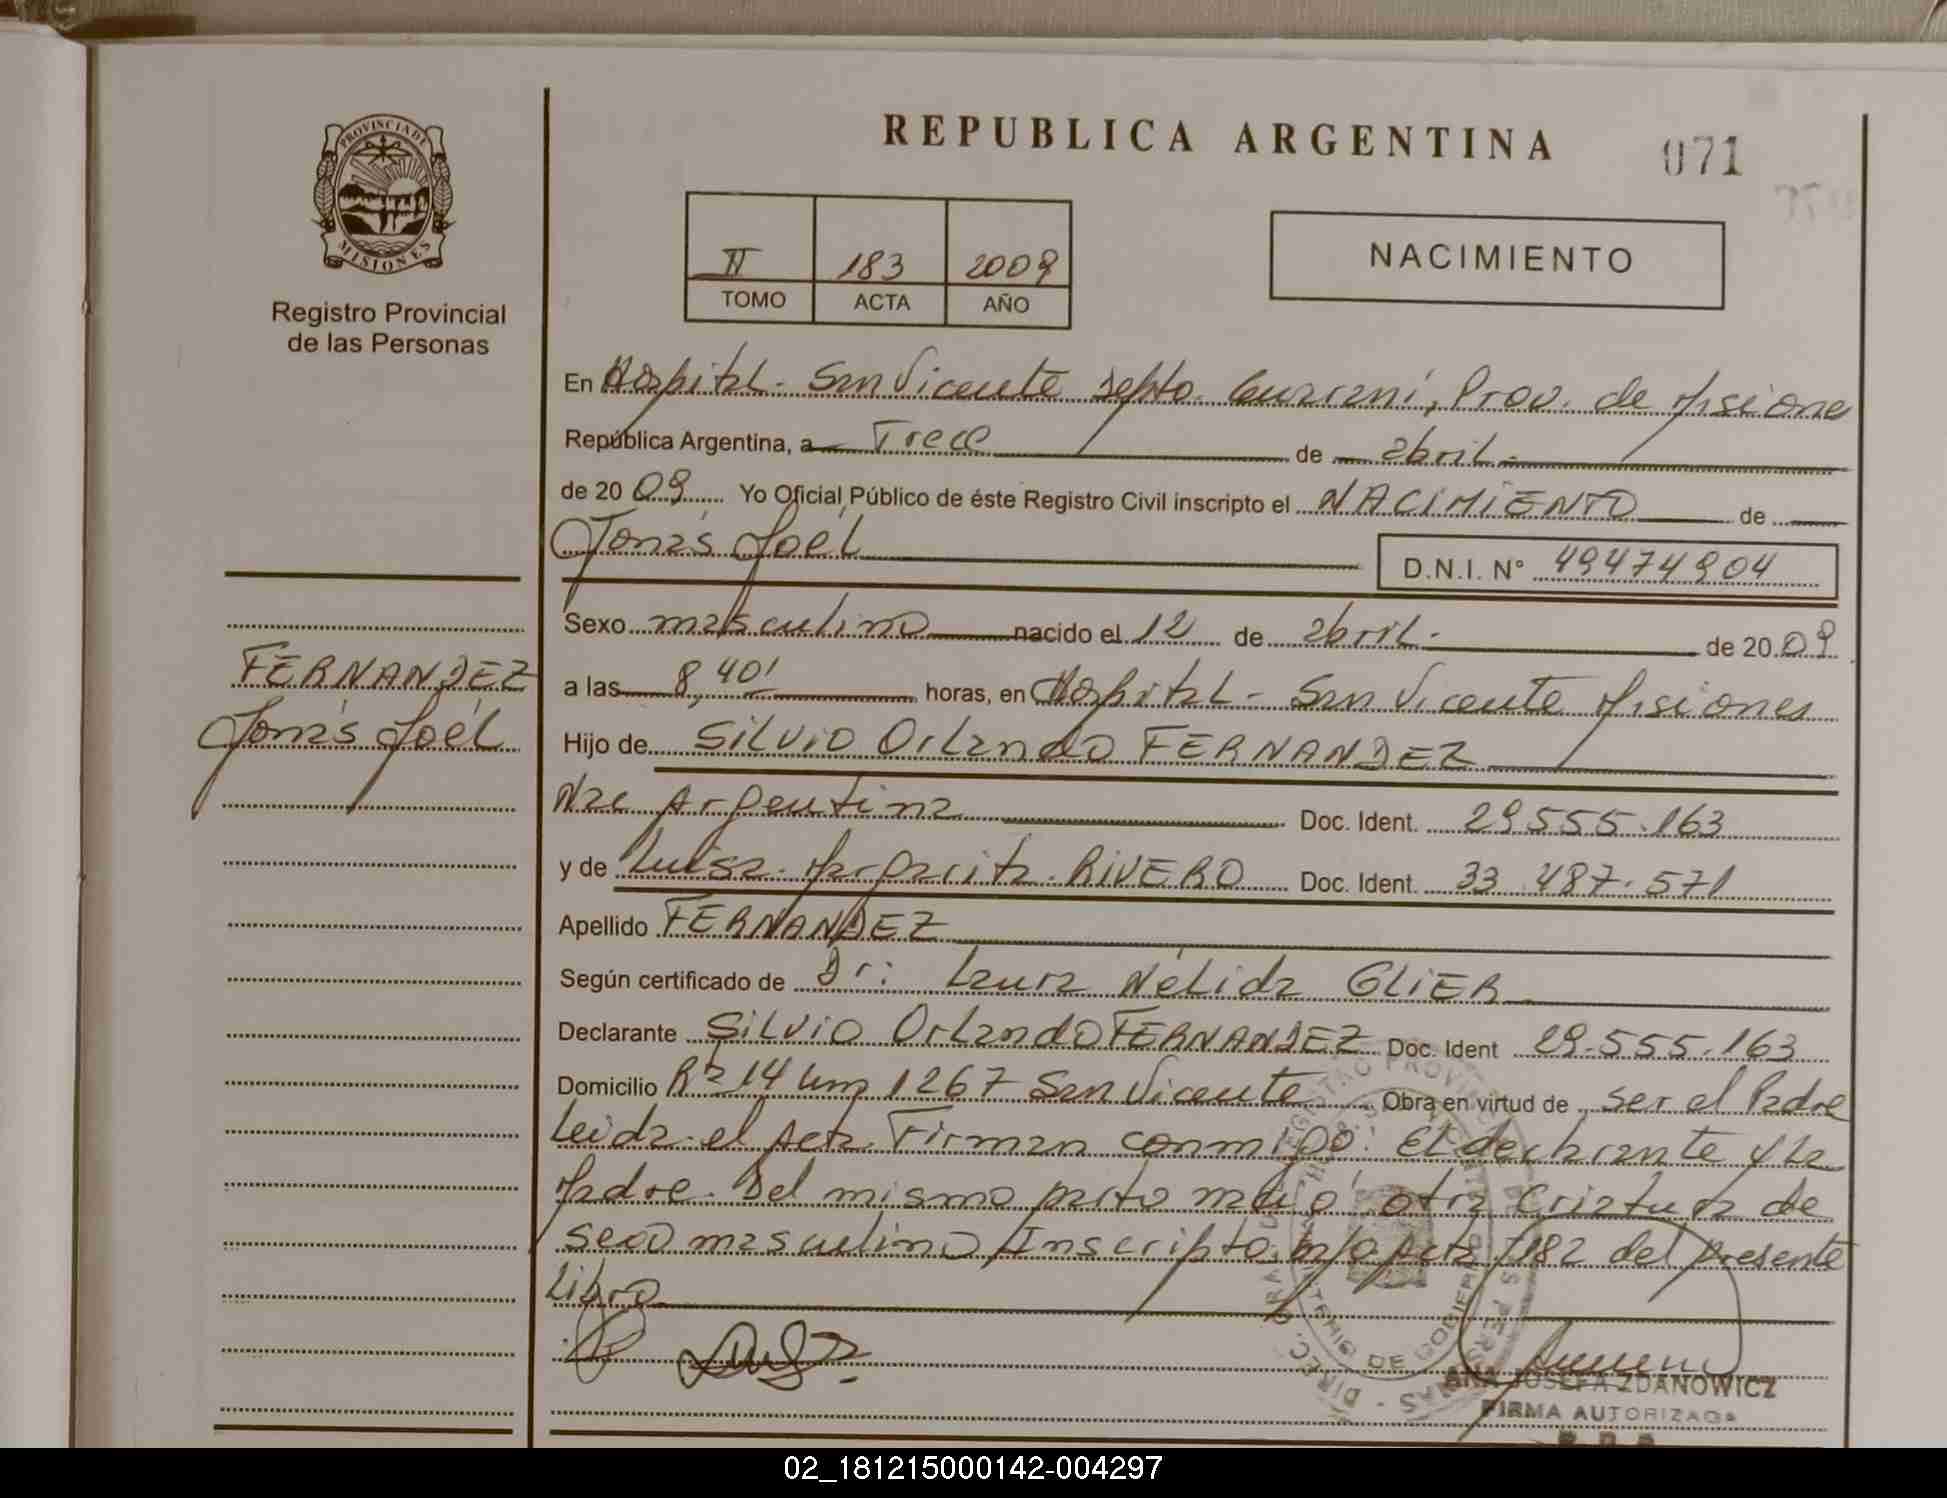 PROVINCIA DE
MISIONES
Registro Provincial
de las Personas
REPUBLICA ARGENTINA
071
II 183 2009
TOMO ACTA AÑO
NACIMIENTO
En Hospital - San Vicente Depto. Guaraní, Prov. de Misiones
República Argentina, a Trece de abril.
de 20 09 Yo Oficial Público de éste Registro Civil inscripto el NACIMIENTO de
Jonás Joél
D.N.I. N° 49474904
Sexo masculino nacido el 12 de abril. de 20 09
a las 8,40' horas, en Hospital - San Vicente Misiones
Hijo de Silvio Orlando FERNANDEZ
Nac Argentina Doc. Ident. 29.555.163
y de Luisa Margarita RIVERO Doc. Ident. 33 487.571
Apellido FERNANDEZ
Según certificado de Dr: Laura Nélida GLIER
Declarante Silvio Orlando FERNANDEZ Doc. Ident 29.555.163
Domicilio Rta 14 km 1267 San Vicente Obra en virtud de ser el Padre
Leida el Acta Firman conmigo: El declarante y La
Madre. Del mismo parto nació otra Criatura de
sexo masculino Inscripto b/o Acta 182 del presente
Libro
FERNANDEZ
Jonás Joél
ANA JOSEFA ZDANOWICZ
FIRMA AUTORIZADA
02_181215000142-004297